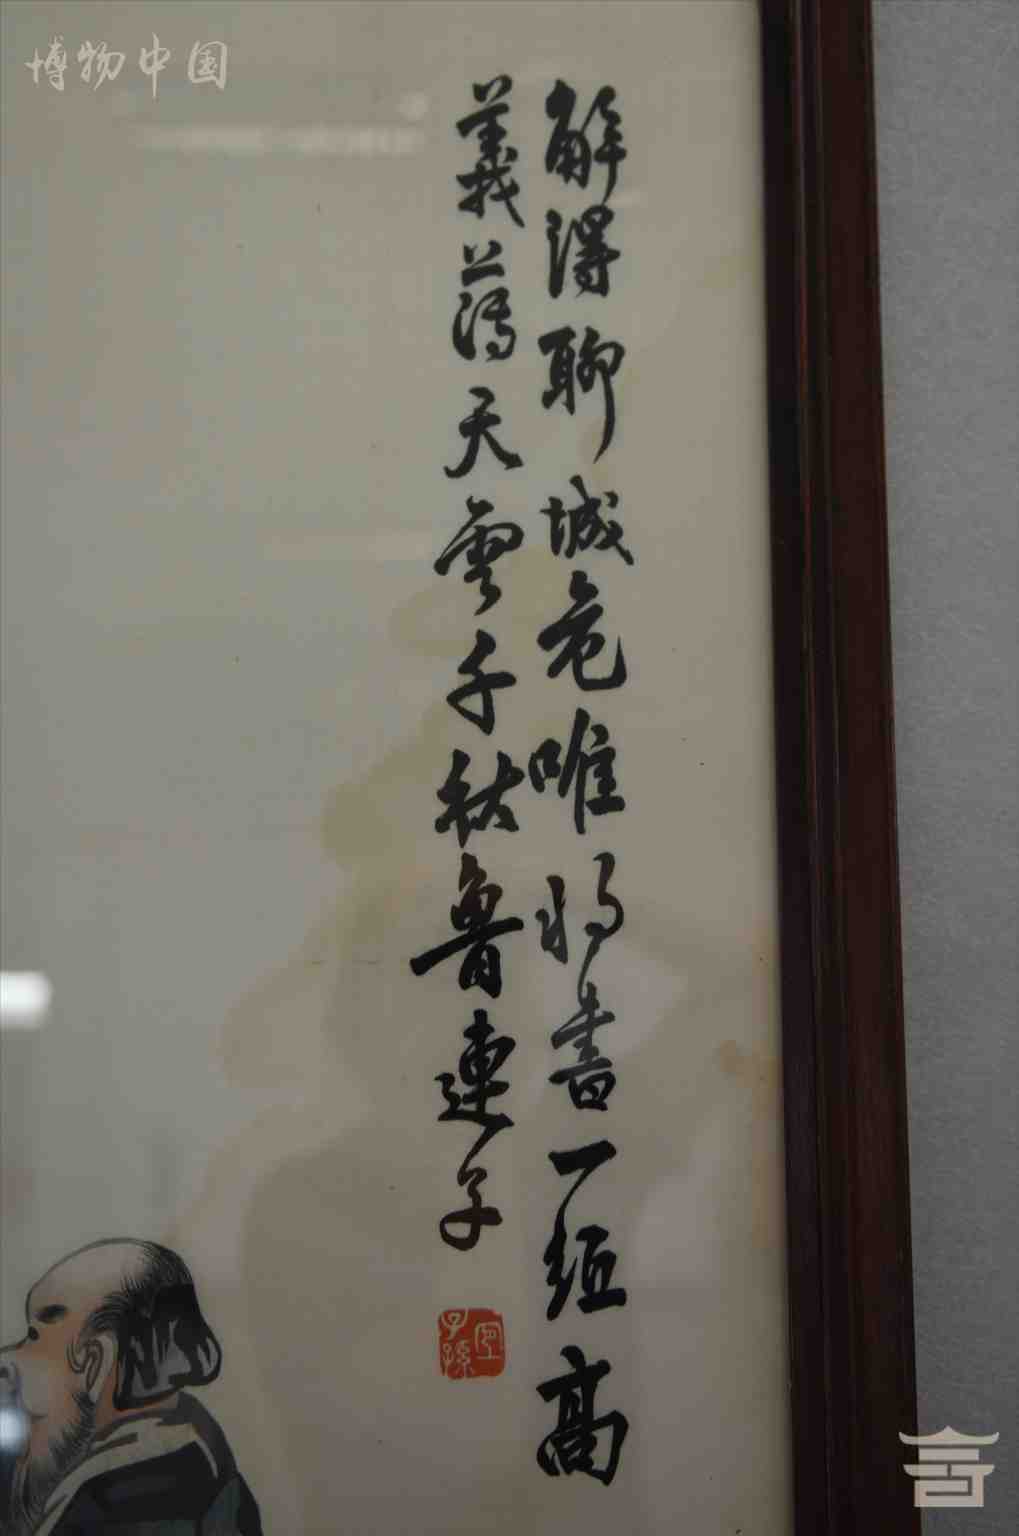 博物中国
解得聊城危唯将書一紙高
義薄天雲千秋魯連子